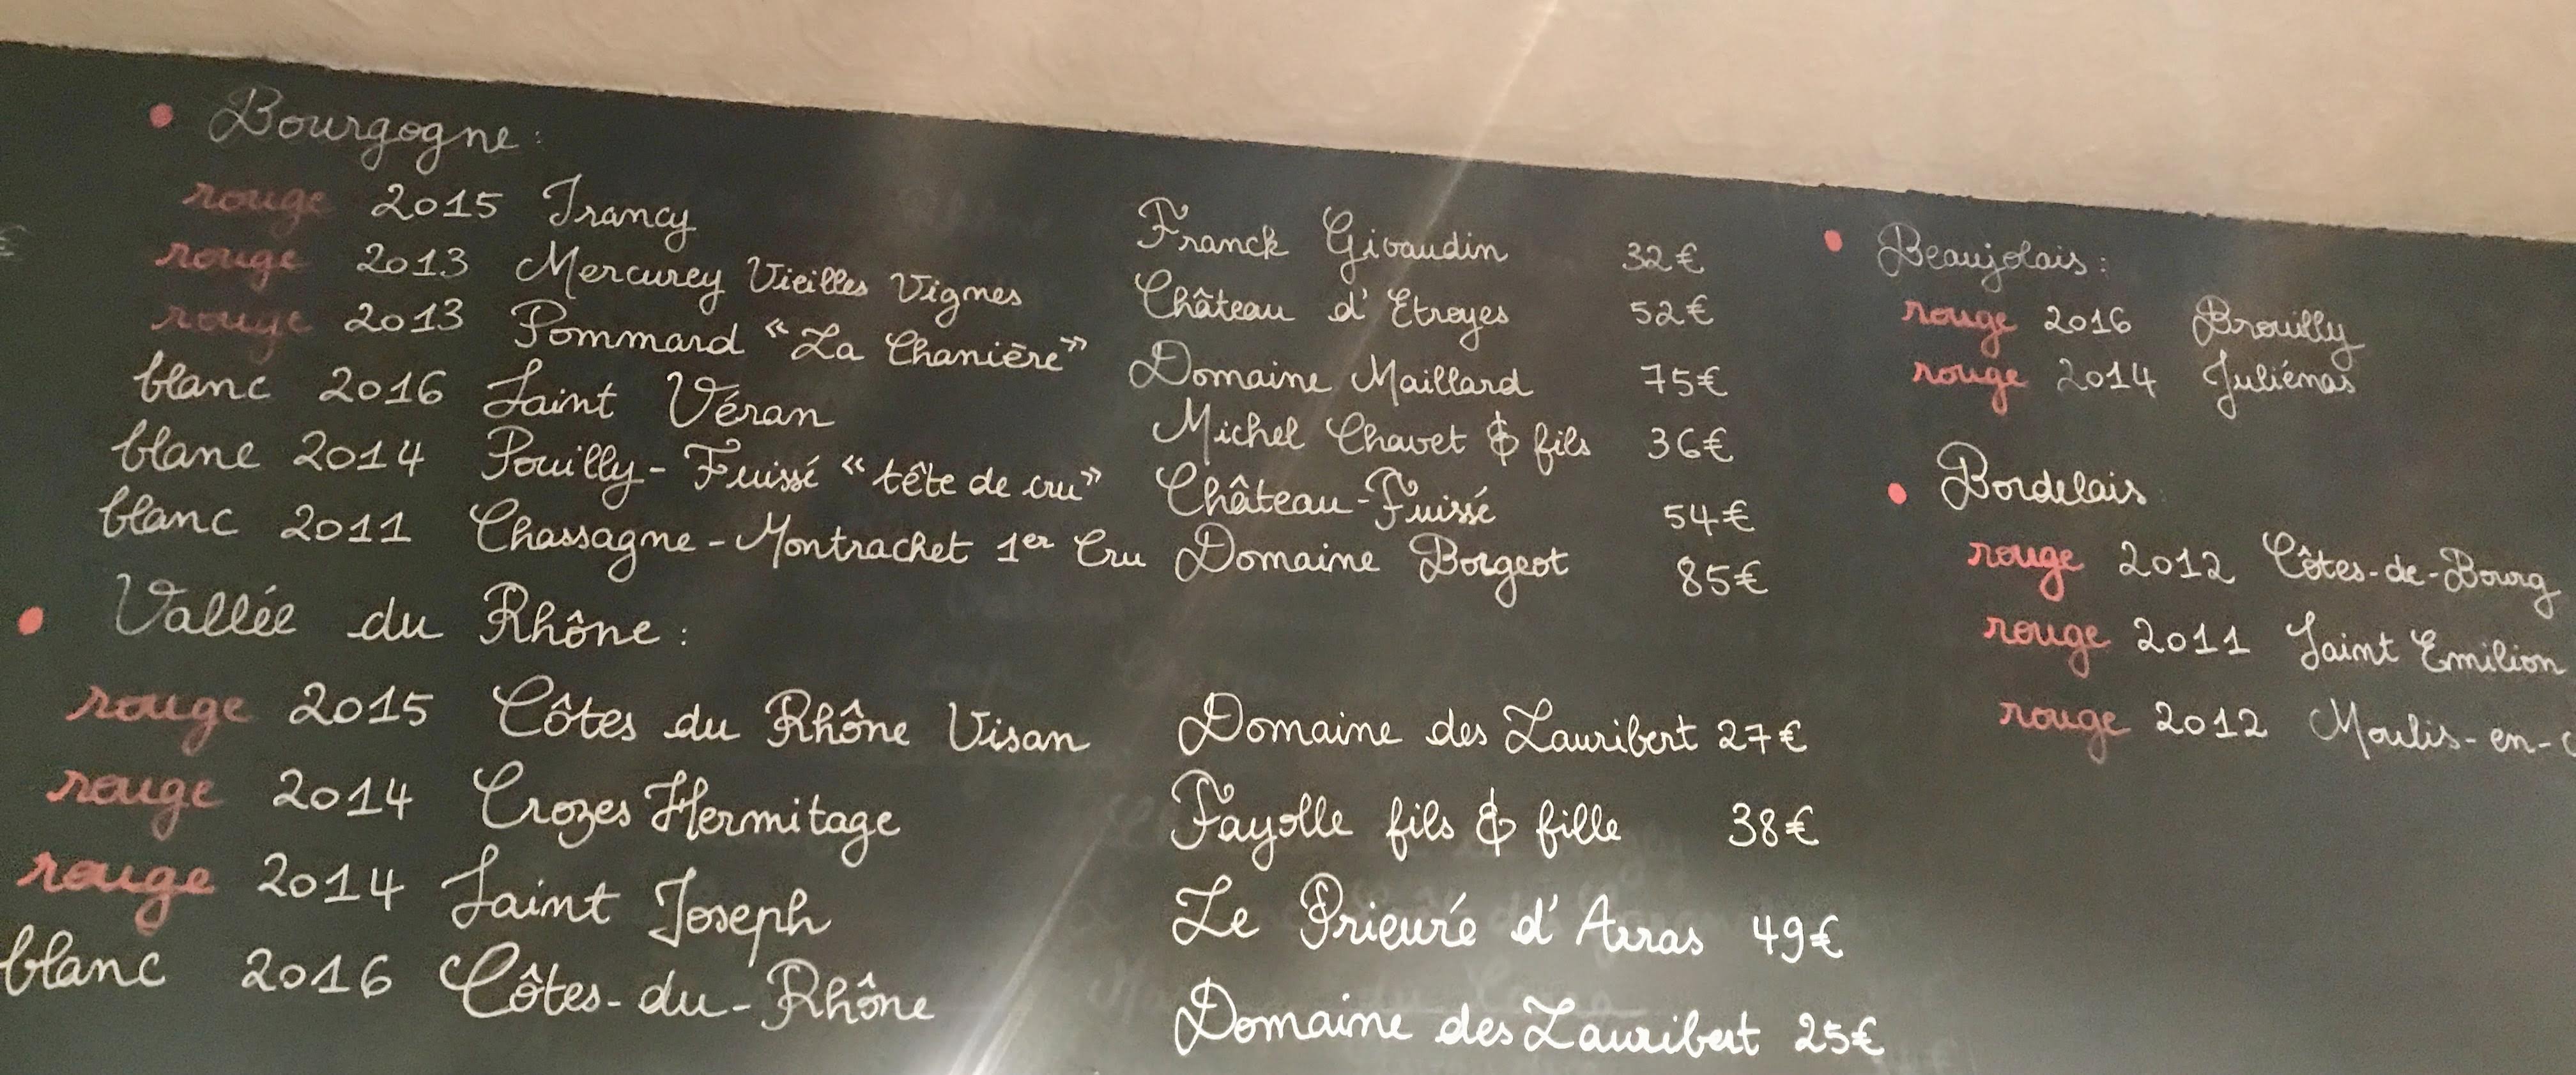 Bourgogne:
rouge 2015 Irancy Franck Givaudin 32€
rouge 2013 Mercurey Vieilles Vignes Château d'Etroyes 52€
rouge 2013 Pommard "La Chanière" Domaine Maillard 75€
blanc 2016 Saint Véran Michel Chavet & fils 36€
blanc 2014 Pouilly-Fuissé "tête de cru" Château-Fuissé 54€
blanc 2011 Chassagne-Montrachet 1er Cru Domaine Borgeot 85€
Vallée du Rhône:
rouge 2015 Côtes du Rhône Visan Domaine des Lauribert 27€
rouge 2014 Crozes Hermitage Fayolle fils & fille 38€
rouge 2014 Saint Joseph Le Prieuré d'Arras 49€
blanc 2016 Côtes-du-Rhône Domaine des Lauribert 25€
Beaujolais:
rouge 2016 Brouilly
rouge 2014 Juliénas
Bordelais
rouge 2012 Côtes-de-Bourg
rouge 2011 Saint Emilion
rouge 2012 Moulis-en-